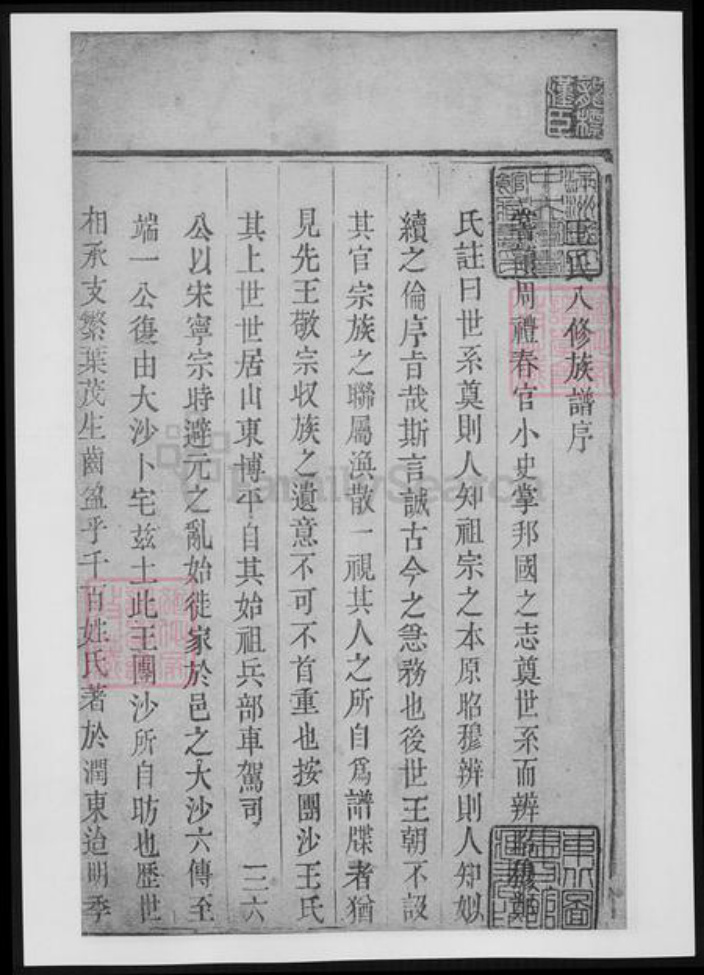 王氏八修族譜序
周禮春官小史掌邦國之志奠世系而辨昭穆鄭
氏註曰世系奠則人知祖宗之本原昭穆辨則人知妙
續之倫序旨哉斯言誠古今之急務也後世王朝不設
其官宗族之聯屬渙散一視其人之所自爲譜牒者猶
見先王敬宗收族之遺意不可不首重也按團沙王氏
其上世世居山東博平自其始祖兵部車駕司 三六
公以宋寧宗時避元之亂始徙家於邑之大沙六傳至
端一公復由大沙卜宅茲土此王團沙所自昉也歷世
相承支繁葉茂生齒盈乎千百姓氏著於潤東迨明季
FamilySearch